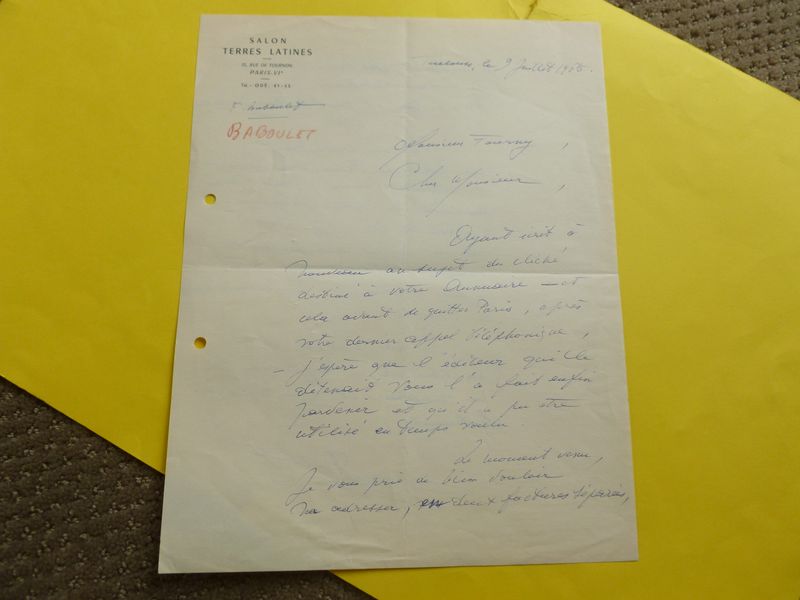 SALON
TERRES LATINES
15, RUE DE TOURNON
PARIS-VIe
Tél. - ODÉ.
le 9 Juillet
F. Baboulet
BABOULET
Monsieur Tourny,
Cher Monsieur,
Ayant écrit à
au sujet du cliché,
destiné à votre Annuaire — et
cela avant de quitter Paris, après
votre dernier appel téléphonique,
— j'espère que l'éditeur qui le
détenait vous l'a fait enfin
parvenir et qu'il a pu être
utilisé en temps voulu.
Le moment venu,
Je vous prie de bien vouloir
adresser, en deux factures séparées,